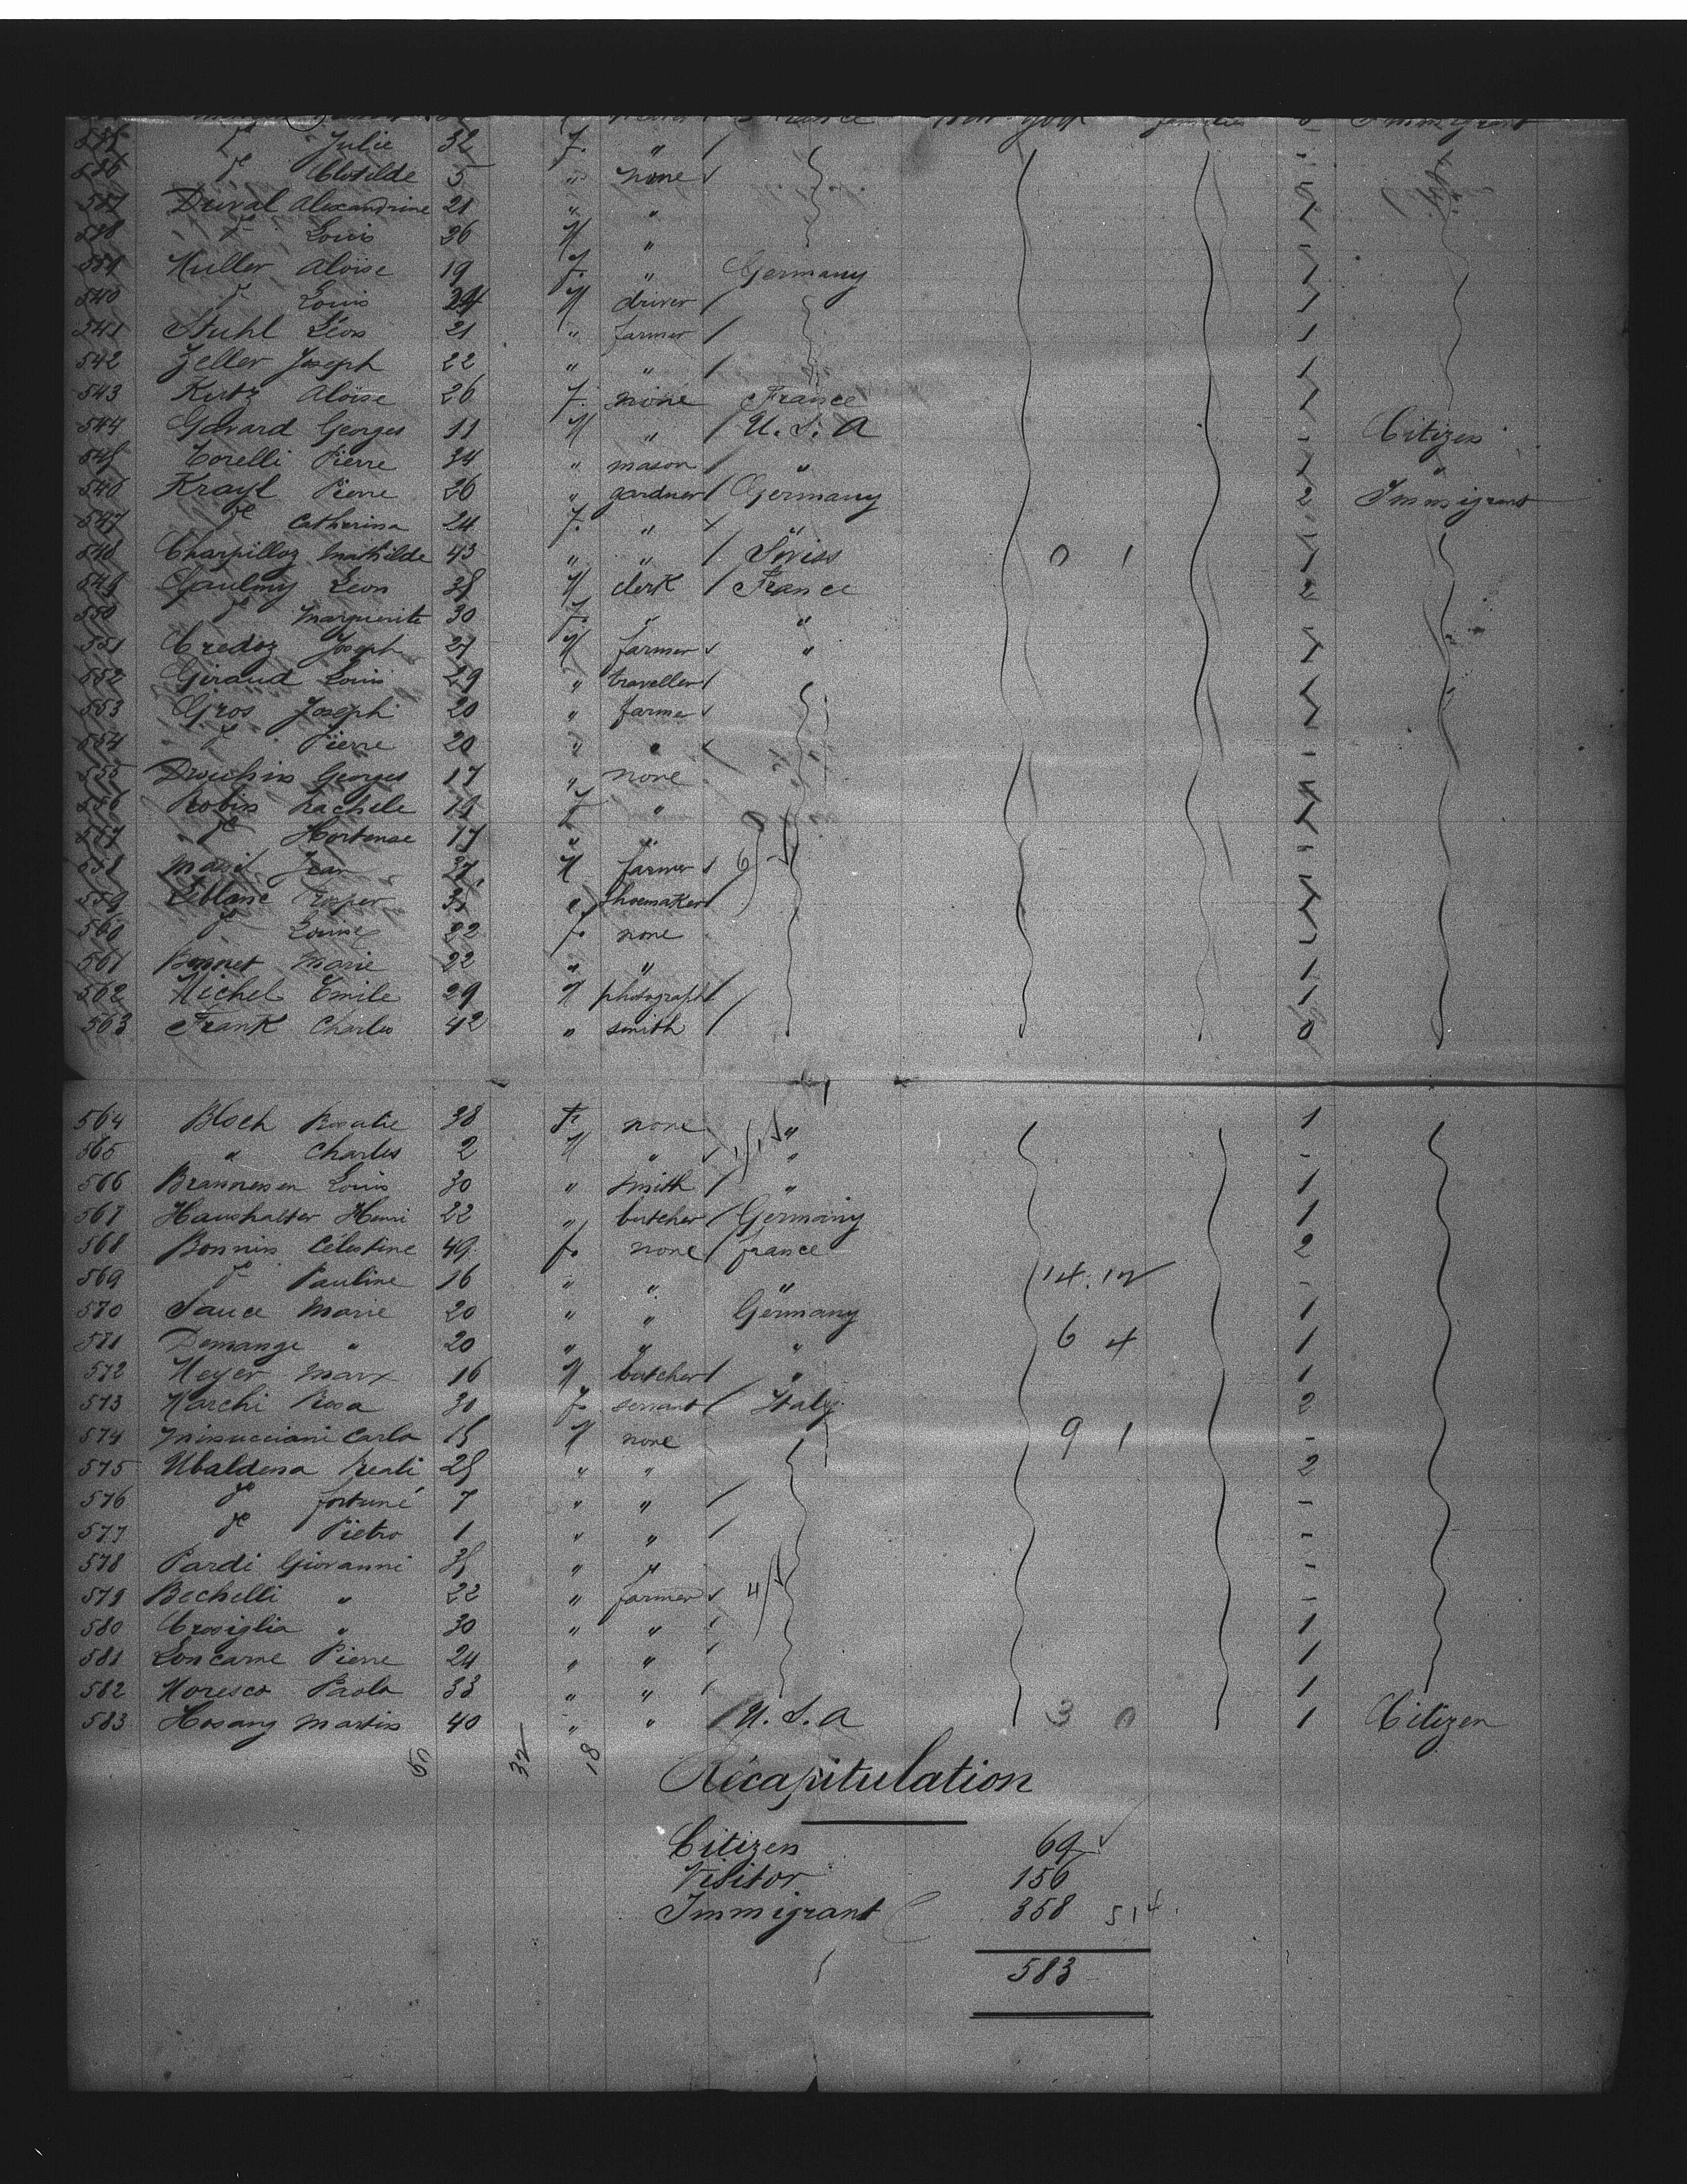 535 do Julie 32 f. " /
536 do Clotilde 5 " none -
537 Duval Alexandrine 21 " " 1
538 do Louis 26 M " -
539 Muller Aloïse 19 f. " Germany 1
540 do Louis 24 M driver / 1
541 Stuhl Léon 21 " farmer / 1
542 Zeller Joseph 22 " " / 1
543 Kurtz Aloïse 26 f. none France 1
544 Gavard Georges 11 M " / U. S. A - Citizen
545 Torelli Pierre 34 " mason / " 1 "
546 Krayl Pierre 26 " gardner / Germany 2 Immigrant
547 do Catherina 24 f. " "
548 Charpilloz Mathilde 43 " " / Swiss 0 1 1
549 Gaulmy Leon 38 M clerk / France 2
550 do Marguerite 30 f. " " -
551 Credoz Joseph 27 M farmer " 1
552 Giraud Louis 29 " traveller / 1
553 Gros Joseph 20 " farmer 1
554 do Pierre 20 " " -
555 Drouhin Georges 17 " none
556 Robin Rachele 19 f "
557 do Hortense 17 " " -
558 Jean 27 M farmer 6
559 Leblanc " shoemaker /
560 do Louise 22 f. none
561 Bonnet Marie 22 " " 1
562 Michel Emile 29 M photograph / 1
563 Frank Charles 42 " smith / 0
564 Bloch Rosalie 38 F. none " 1
565 " Charles 2 M " " -
566 Louis 30 " smith / " 1
567 Haushalter Henri 22 " butcher / Germany 1
568 Bonnin Célestine 49 f. none / france 2
569 do Pauline 16 " " " 14. 12 -
570 Sauce Marie 20 " " Germany 1
571 Demange " 20 " " " 6 4 1
572 Meyer Marx 16 M butcher / " 1
573 Marchi Rosa 30 f. servant / Italy 2
574 Minucciani Carlo 15 M none 9 1 -
575 Ubaldena Reali 25 " " 2
576 do fortuné 7 " " / -
577 do Pietro 1 " " / -
578 Pardi Giovanni 35 " " -
579 Bechelli " 22 " farmer 4 -
580 Crosiglia " 30 " " 1
581 Loncarne Pierre 24 " " 1
582 Moresco Paolo 33 " " 1
583 Hosang Martin 40 " " / U. S. A 3 0 1 Citizen
50 32 18
Récapitulation
Citizen 69
Visitor 156
Immigrant 358 514
583